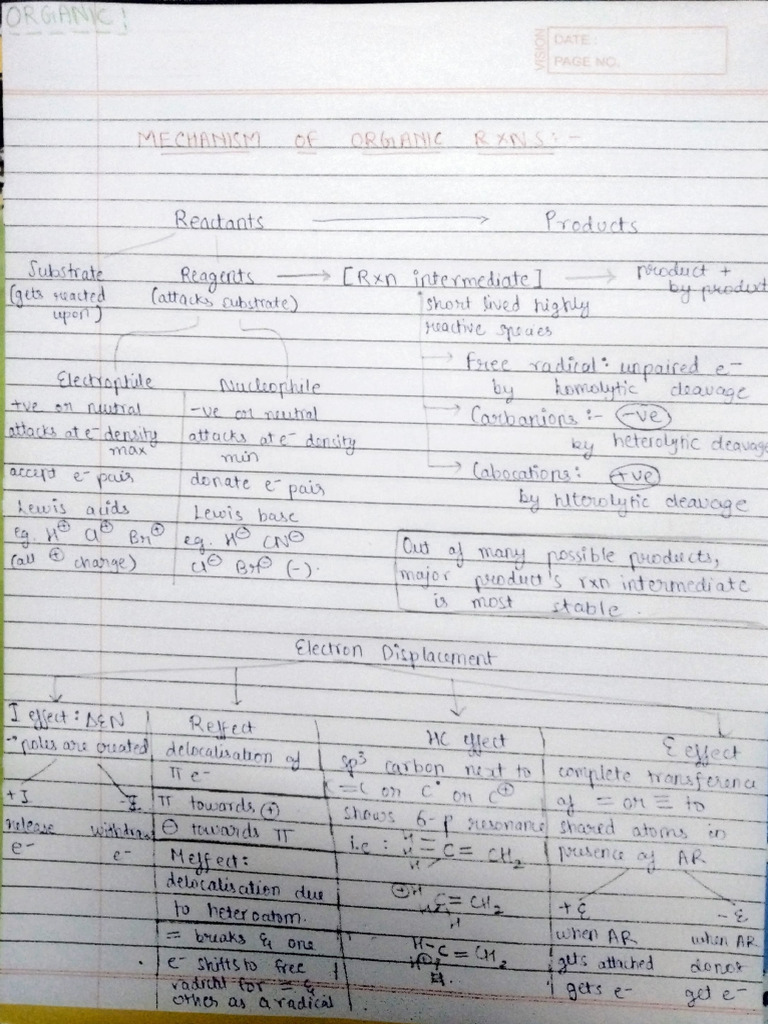 ORGANIC!
VISION
DATE:
PAGE NO.
MECHANISM OF ORGANIC RXNS:-
Reactants → Products
Substrate
(gets reacted
upon)
Reagents → [Rxn intermediate] → product +
(attacks substrate)
by product
short lived highly
reactive species
→ Free radical: unpaired e-
by homolytic cleavage
→ Carbanions:- -ve
by heterolytic cleavage
→ Cabocations: +ve
by hlterolytic cleavage
Electrophile
+ve or neutral
attacks at e- density
max
accept e- pair
Lewis acids
eg. H⊕ Cl⊕ Br⊕
(all ⊕ charge)
Nucleophile
-ve or neutral
attacks at e- density
min
donate e- pair
Lewis base
eg. H⊖ CN⊖
Cl⊖ Br⊖ (-).
Out of many possible products,
major product's rxn intermediate
is most stable.
Electron Displacement
I effect: ΔEN
→ poles are created
+I -I
release withdraw
e- e-
R effect
delocalisation of
π e-
π towards ⊕
⊖ towards π
M effect:
delocalisation due
to heteroatom.
= breaks & one
e- shifts to free
radical for = &
other as a radical
HC effect
sp³ carbon next to
C=C or C• or C⊕
shows 6-p resonance
i.e:
C = CH2
⊕H
C = CH2
H
H-C = CH2
E effect
complete transference
of = or ≡ to
shared atoms in
presence of AR
+E -E
when AR when AR
gets attached donot
gets e- get e-